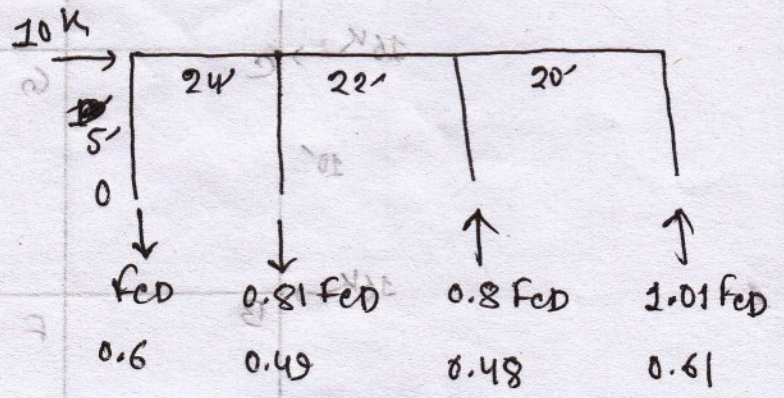 10 K
24' 22' 20'
5'
0
FCD 0.81 FCD 0.8 FCD 1.01 FCD
0.6 0.49 0.48 0.61